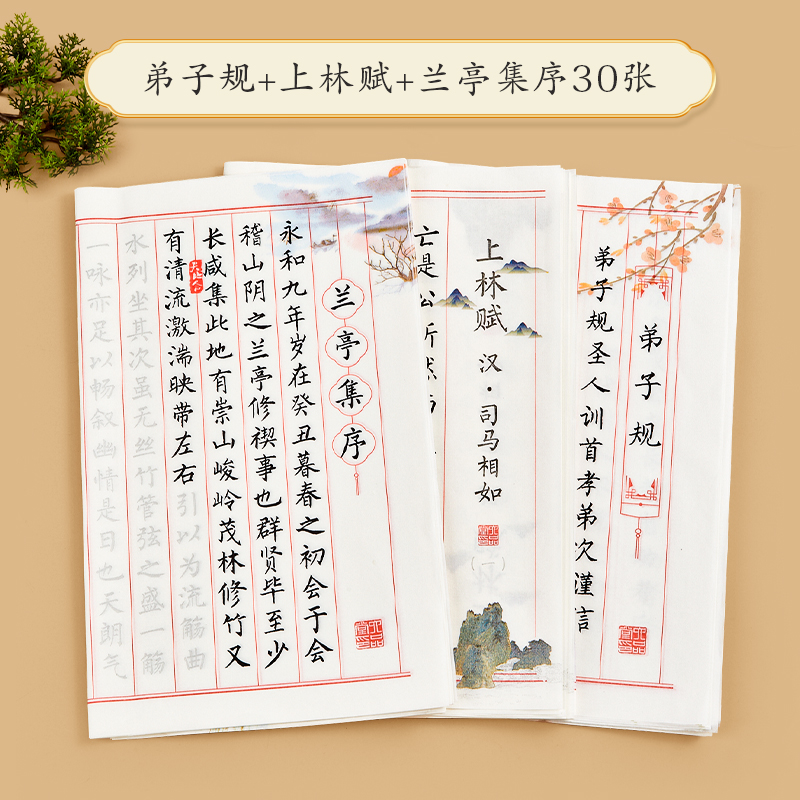 弟子规+上林赋+兰亭集序30张
兰亭集序
永和九年岁在癸丑暮春之初会于会
稽山阴之兰亭修禊事也群贤毕至少
长咸集此地有崇山峻岭茂林修竹又
有清流激湍映带左右引以为流觞曲
水列坐其次虽无丝竹管弦之盛一觞
一咏亦足以畅叙幽情是日也天朗气
上林赋
汉·司马相如
亡是公听然
弟子规
弟子规圣人训首孝弟次谨言